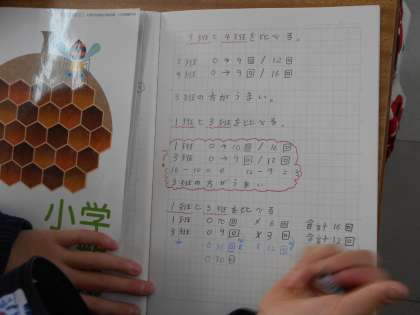 3班と4班を比べる。
3班 0→9回/12回
4班 0→9回/16回
3班の方がうまい。
1班と3班を比べる。
1班 0→10回/16回
3班 0→9回/12回
16-10=6 12-9=3
3班の方がうまい
1班と3班を比べる
1班 0 10回 × 6回 合計16回
3班 0 9回 × 3回 合計12回
0 30回
小学